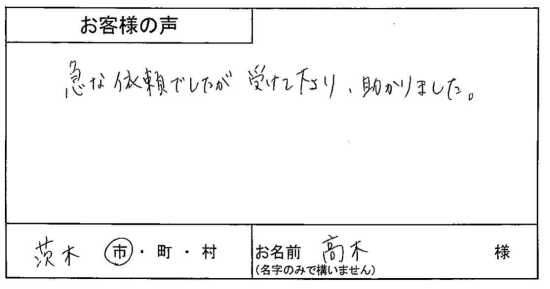 お客様の声
急な依頼でしたが 受けて下さり、助かりました。
茨木 市・町・村
お名前 高木 様
(名字のみで構いません)